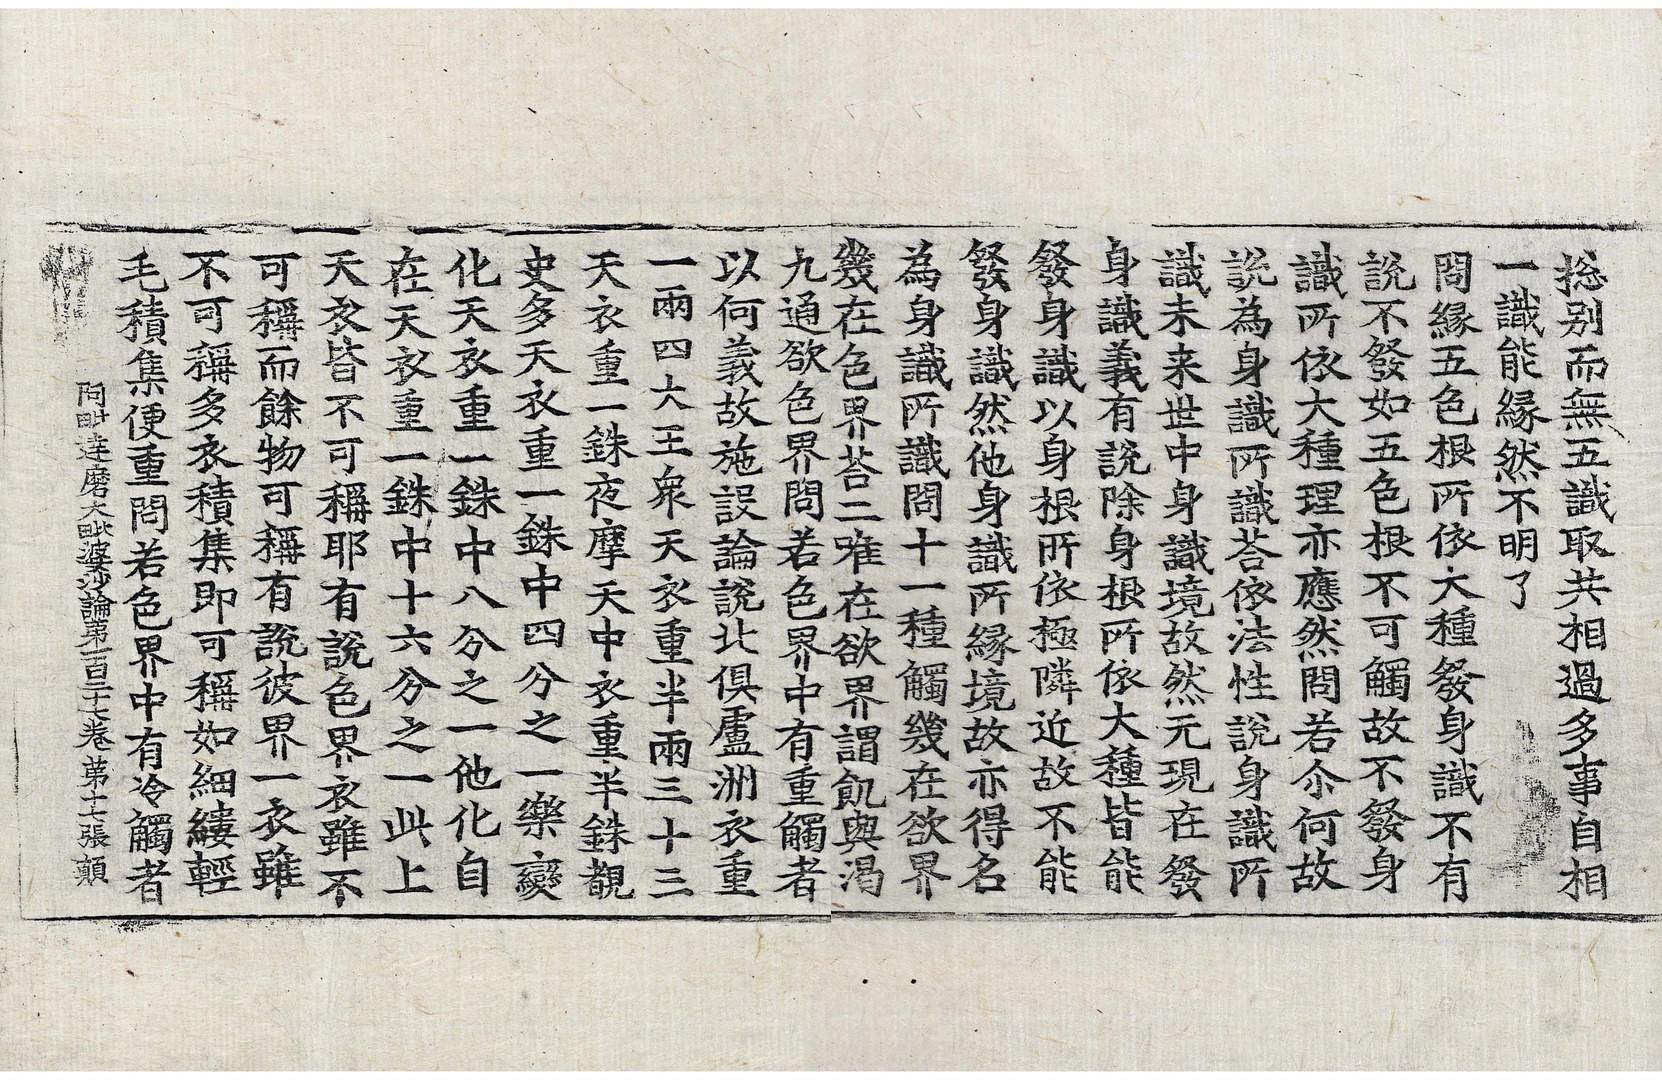 捴别而無五識取共相過多事自相
一識能縁然不明了
問縁五色根所依大種發身識不有
說不發如五色根不可觸故不發身
識所依大種理亦應然問若尒何故
說為身識所識荅依法性說身識所
識未来世中身識境故然无現在發
身識義有說除身根所依大種皆能
發身識以身根所依極隣近故不能
發身識然他身識所縁境故亦得名
為身識所識問十一種觸幾在欲界
幾在色界荅二唯在欲界謂飢與渴
九通欲色界問若色界中有重觸者
以何義故施設論說北俱盧洲衣重
一兩四大王衆天衣重半兩三十三
天衣重一銖夜摩天中衣重半銖覩
史多天衣重一銖中四分之一樂變
化天衣重一銖中八分之一他化自
在天衣重一銖中十六分之一此上
天衣皆不可稱耶有說色界衣雖不
可稱而餘物可稱有說彼界一衣雖
不可稱多衣積集即可稱如細縷輕
毛積集便重問若色界中有冷觸者
阿毗達磨大毗婆沙論第一百二十七卷 第十七張 顛